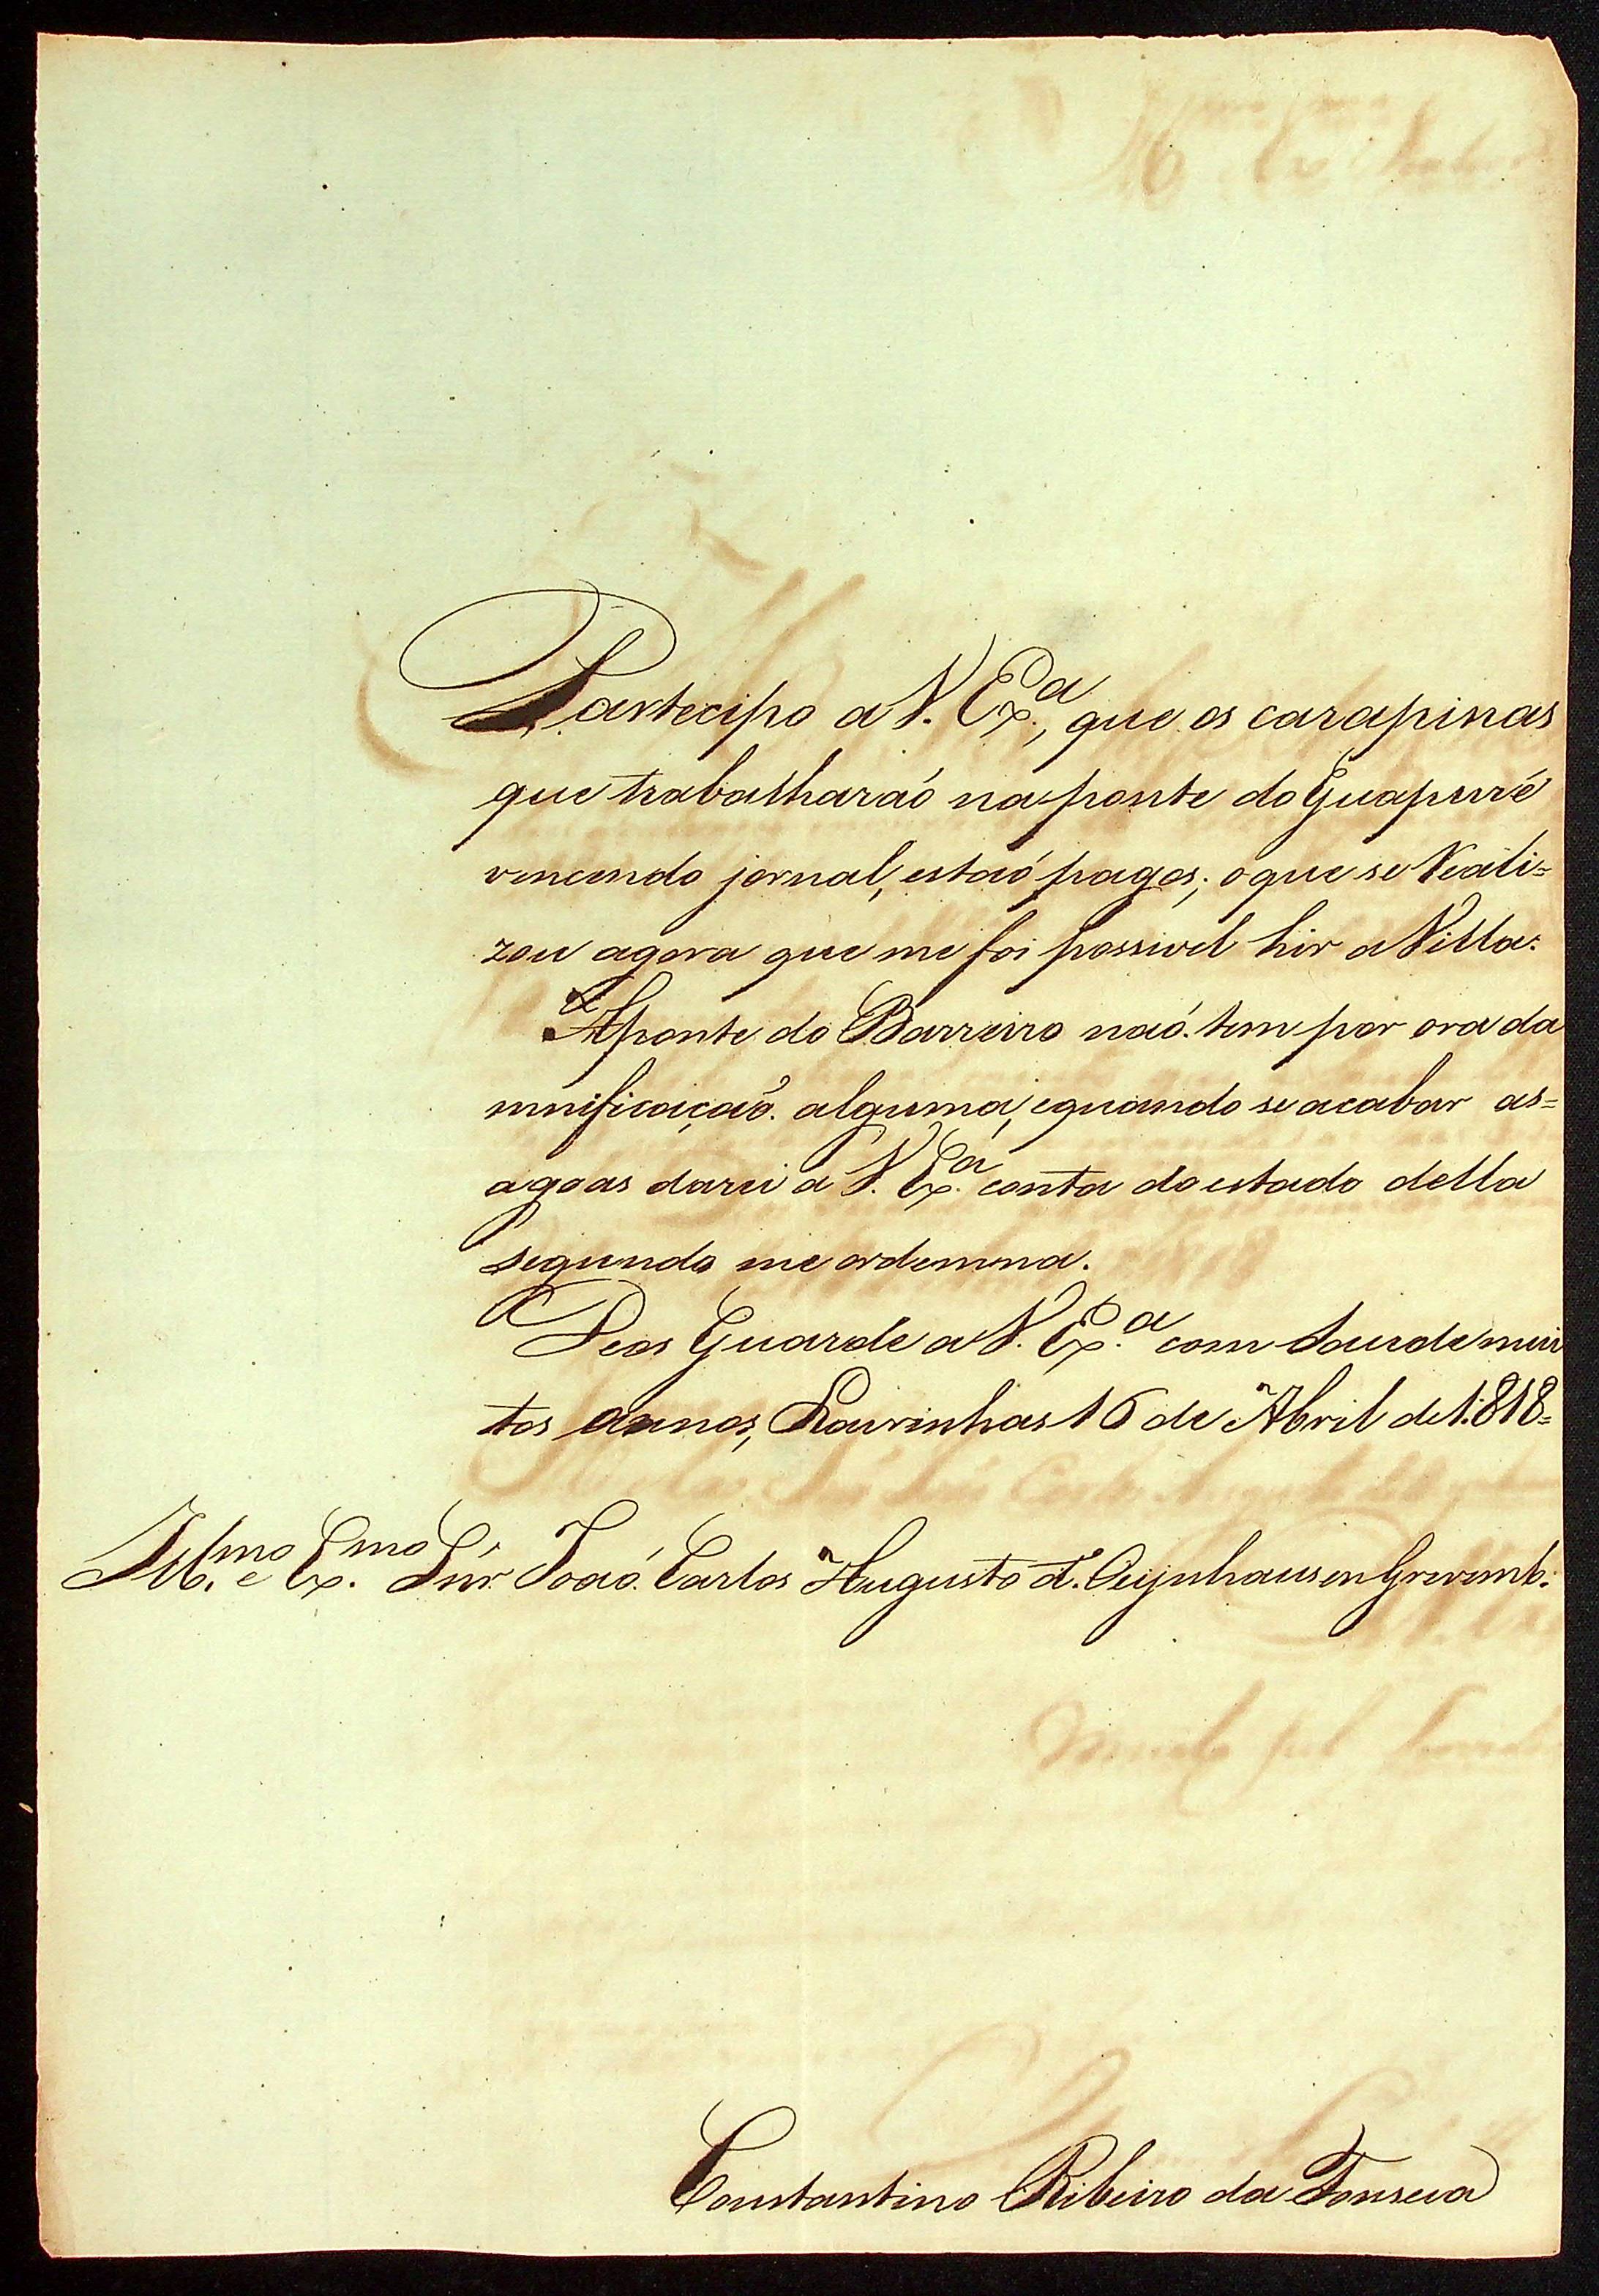 Partecipo a V. Ex.ª, que os carapinas
que trabalharaó na ponte do Guapurré
vencendo jornal, estaó pagos; o que se Reali=
zou agora que me foi possivel hir a Villa.
A ponte do Barreiro naó tem por ora da
mnificaçaó alguma, e quando se acabar as=
agoas darei a V. Ex.ª conta do estado della
segundo me ordemna.
Deos Guarde a V. Ex.ª com Saude mui
tos annos, Lavrinhas 16 de Abril de 1:818=
Ill.mo e Ex.mo Snr. Joaó Carlos Augusto d'. Oeynhausen Grevemb.
Constantino Ribeiro da Fonseca